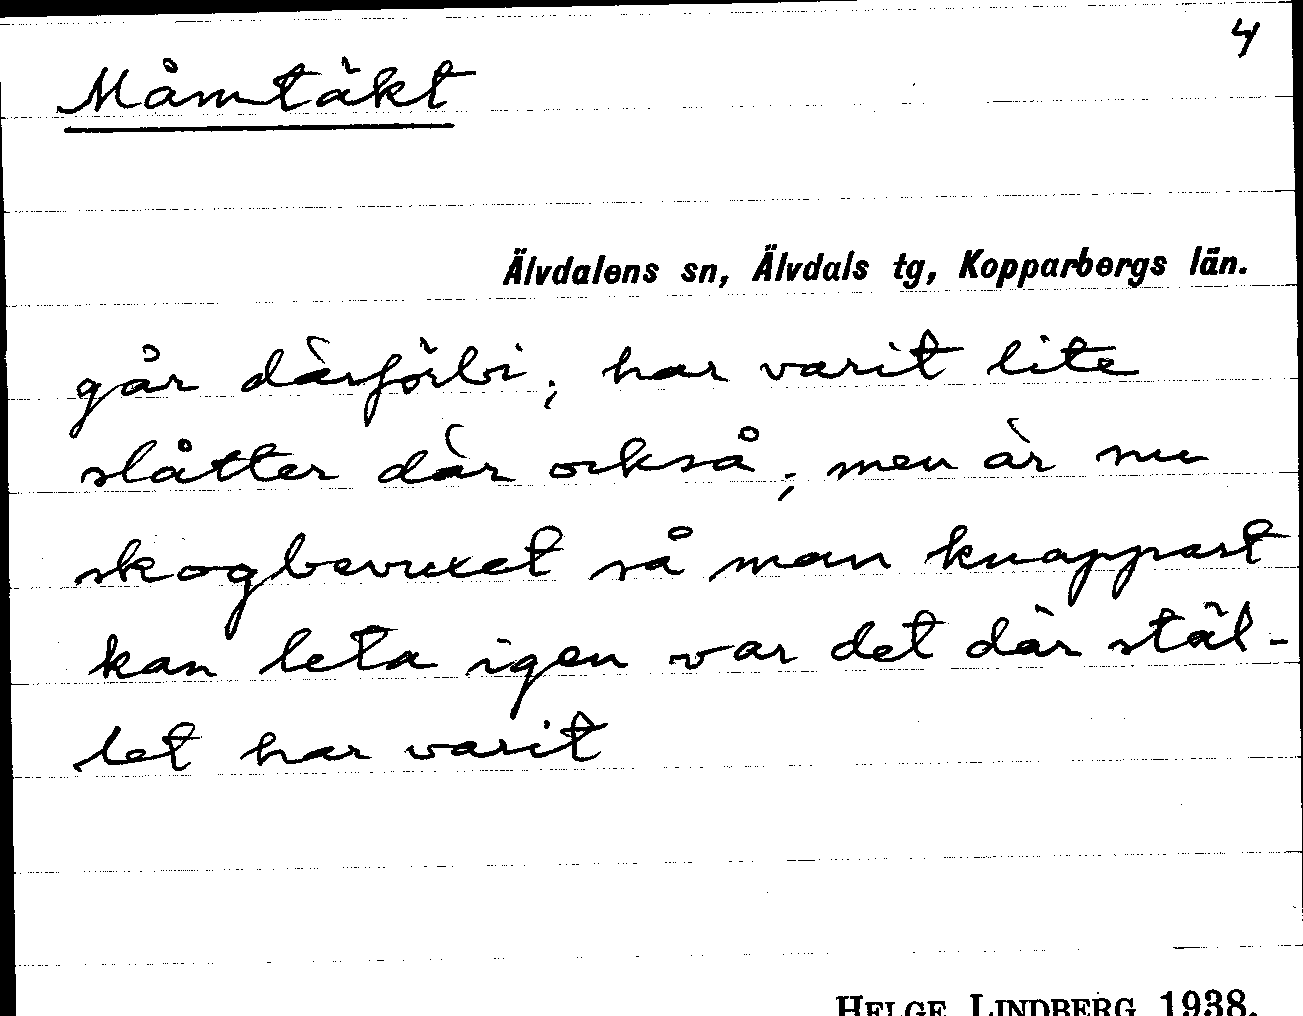 4
Måmtäkt
Älvdalens sn, Älvdals tg, Kopparbergs län.
går därförbi; har varit lite
slåtter där också; men är nu
skogbevuxet så man knappast
kan leta igen var det där stäl-
let har varit
HELGE LINDBERG 1938.